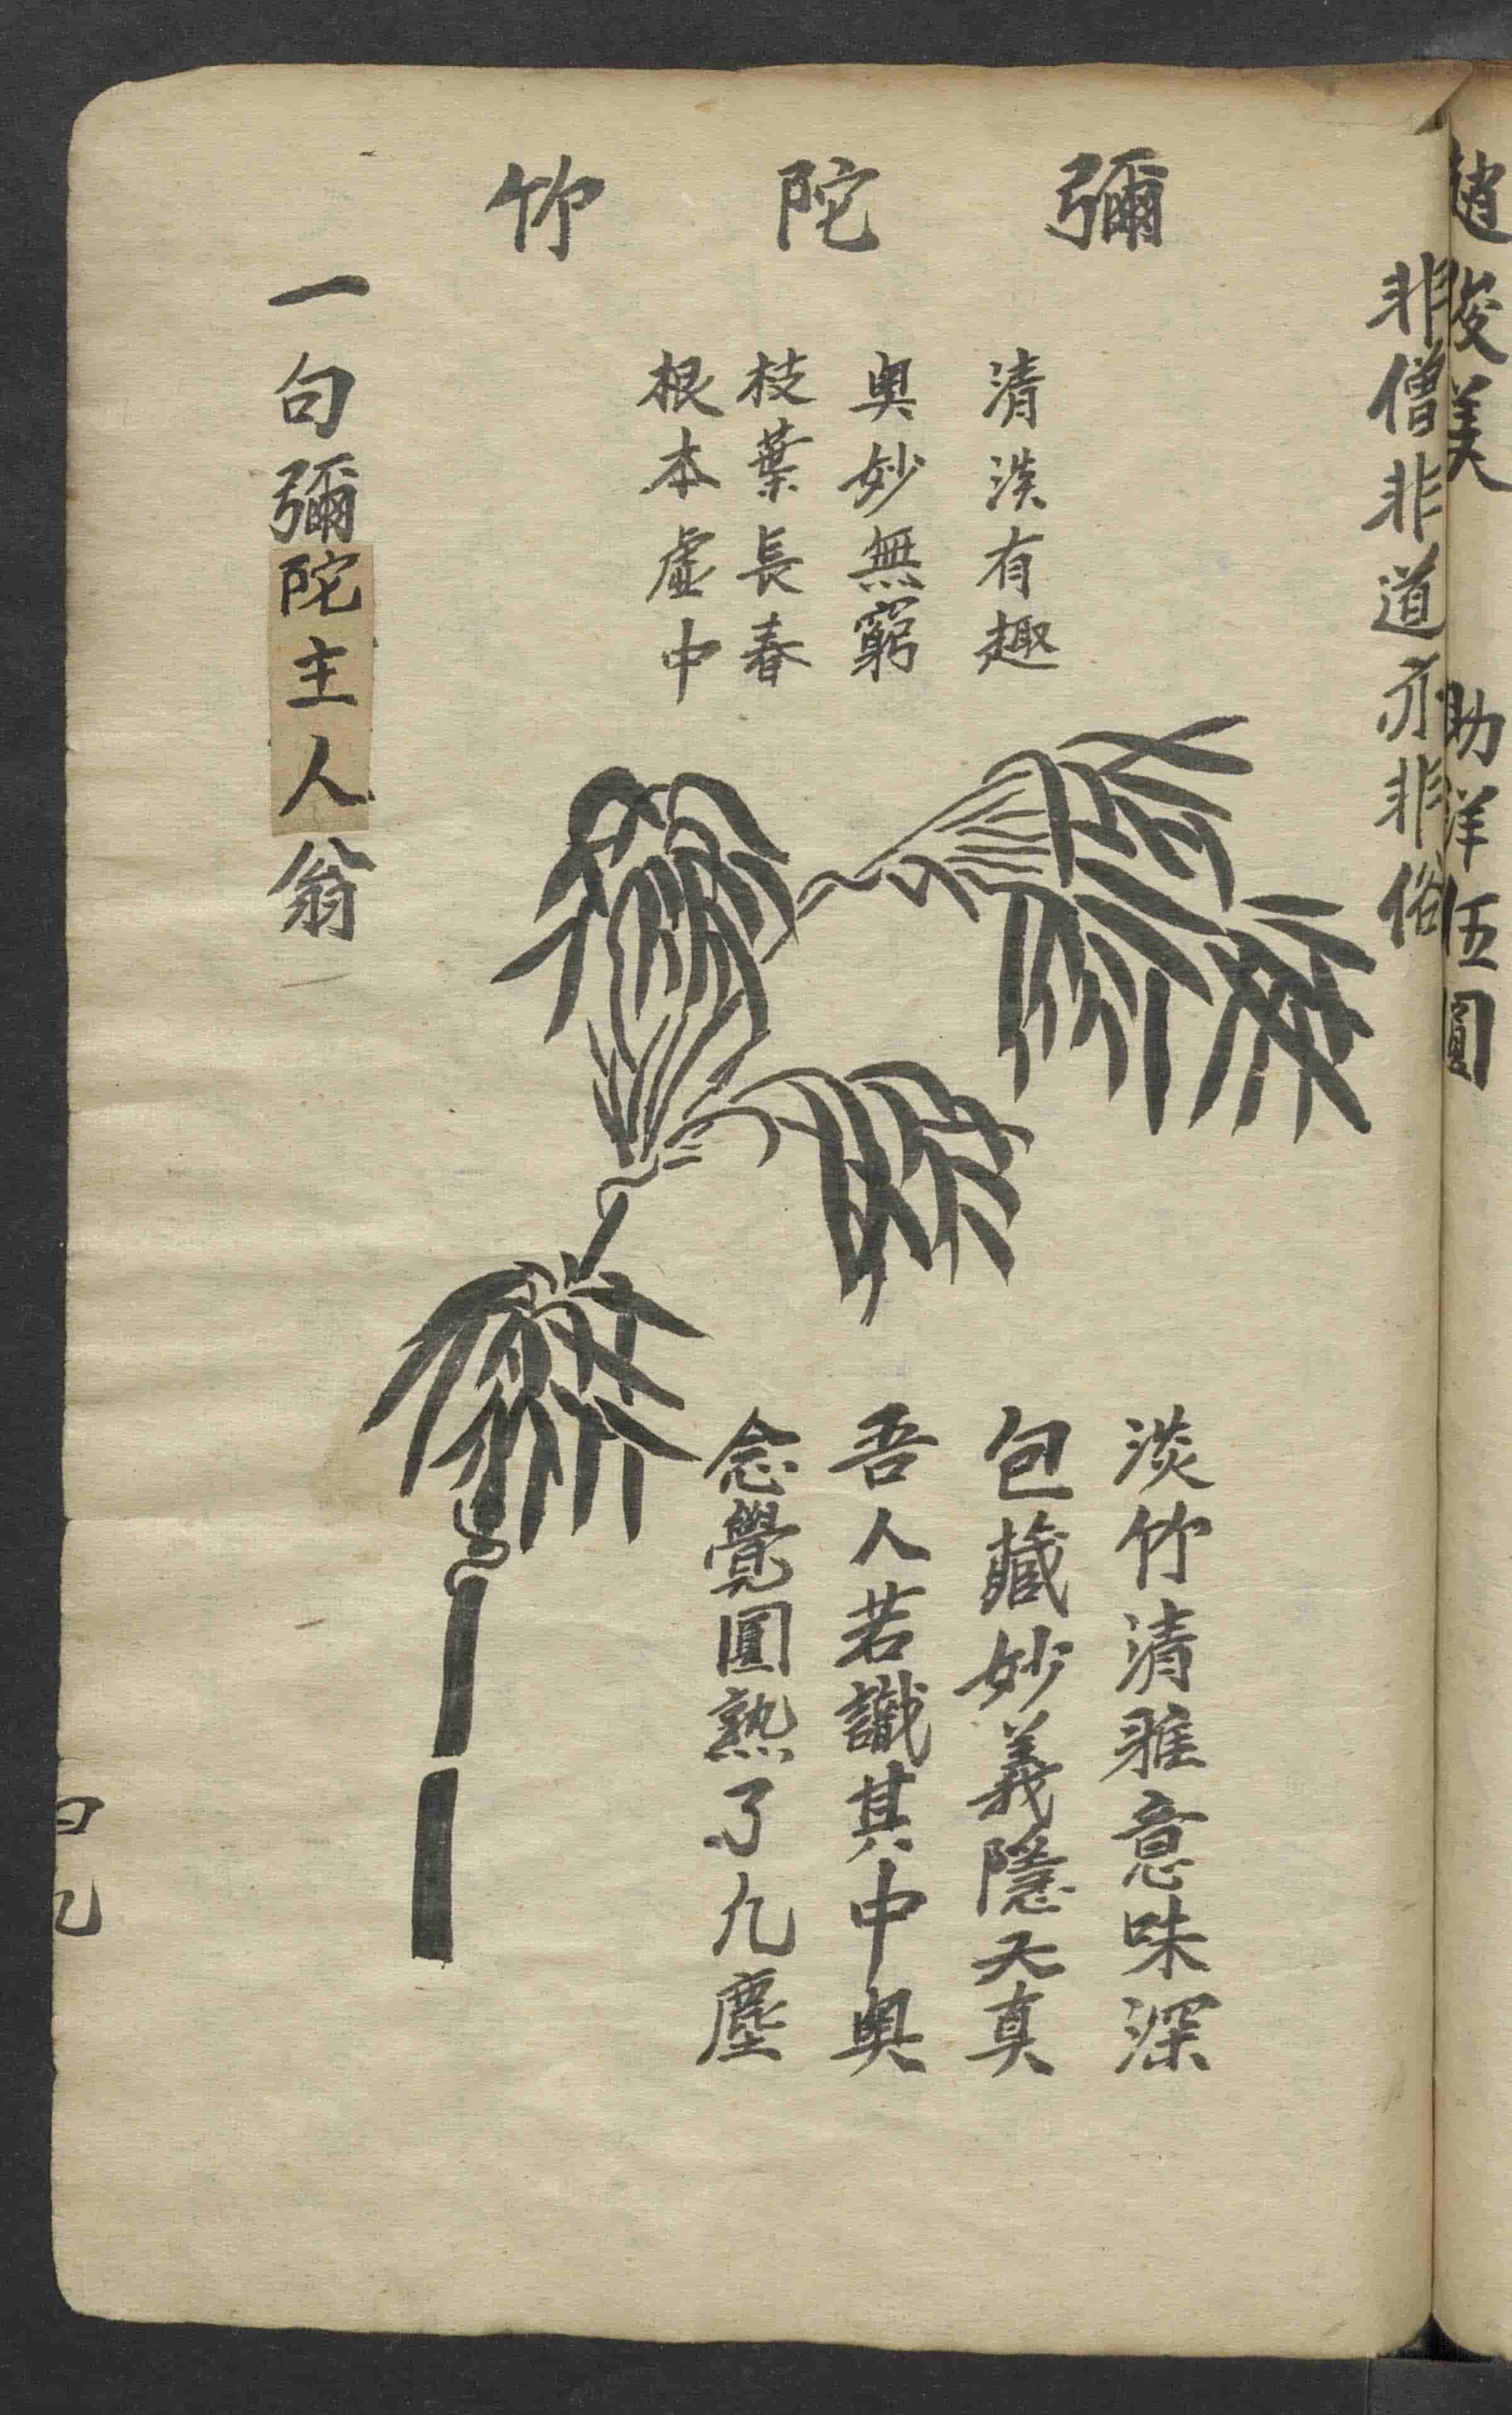 趙俊美 助洋伍圓
非僧非道亦非俗
彌陀竹
清淡有趣
奥妙無窮
枝葉長春
根本虛中
淡竹清雅意味深
包藏妙義隱天真
吾人若識其中奥
念覺圓熟了凡塵
一句彌陀主人翁